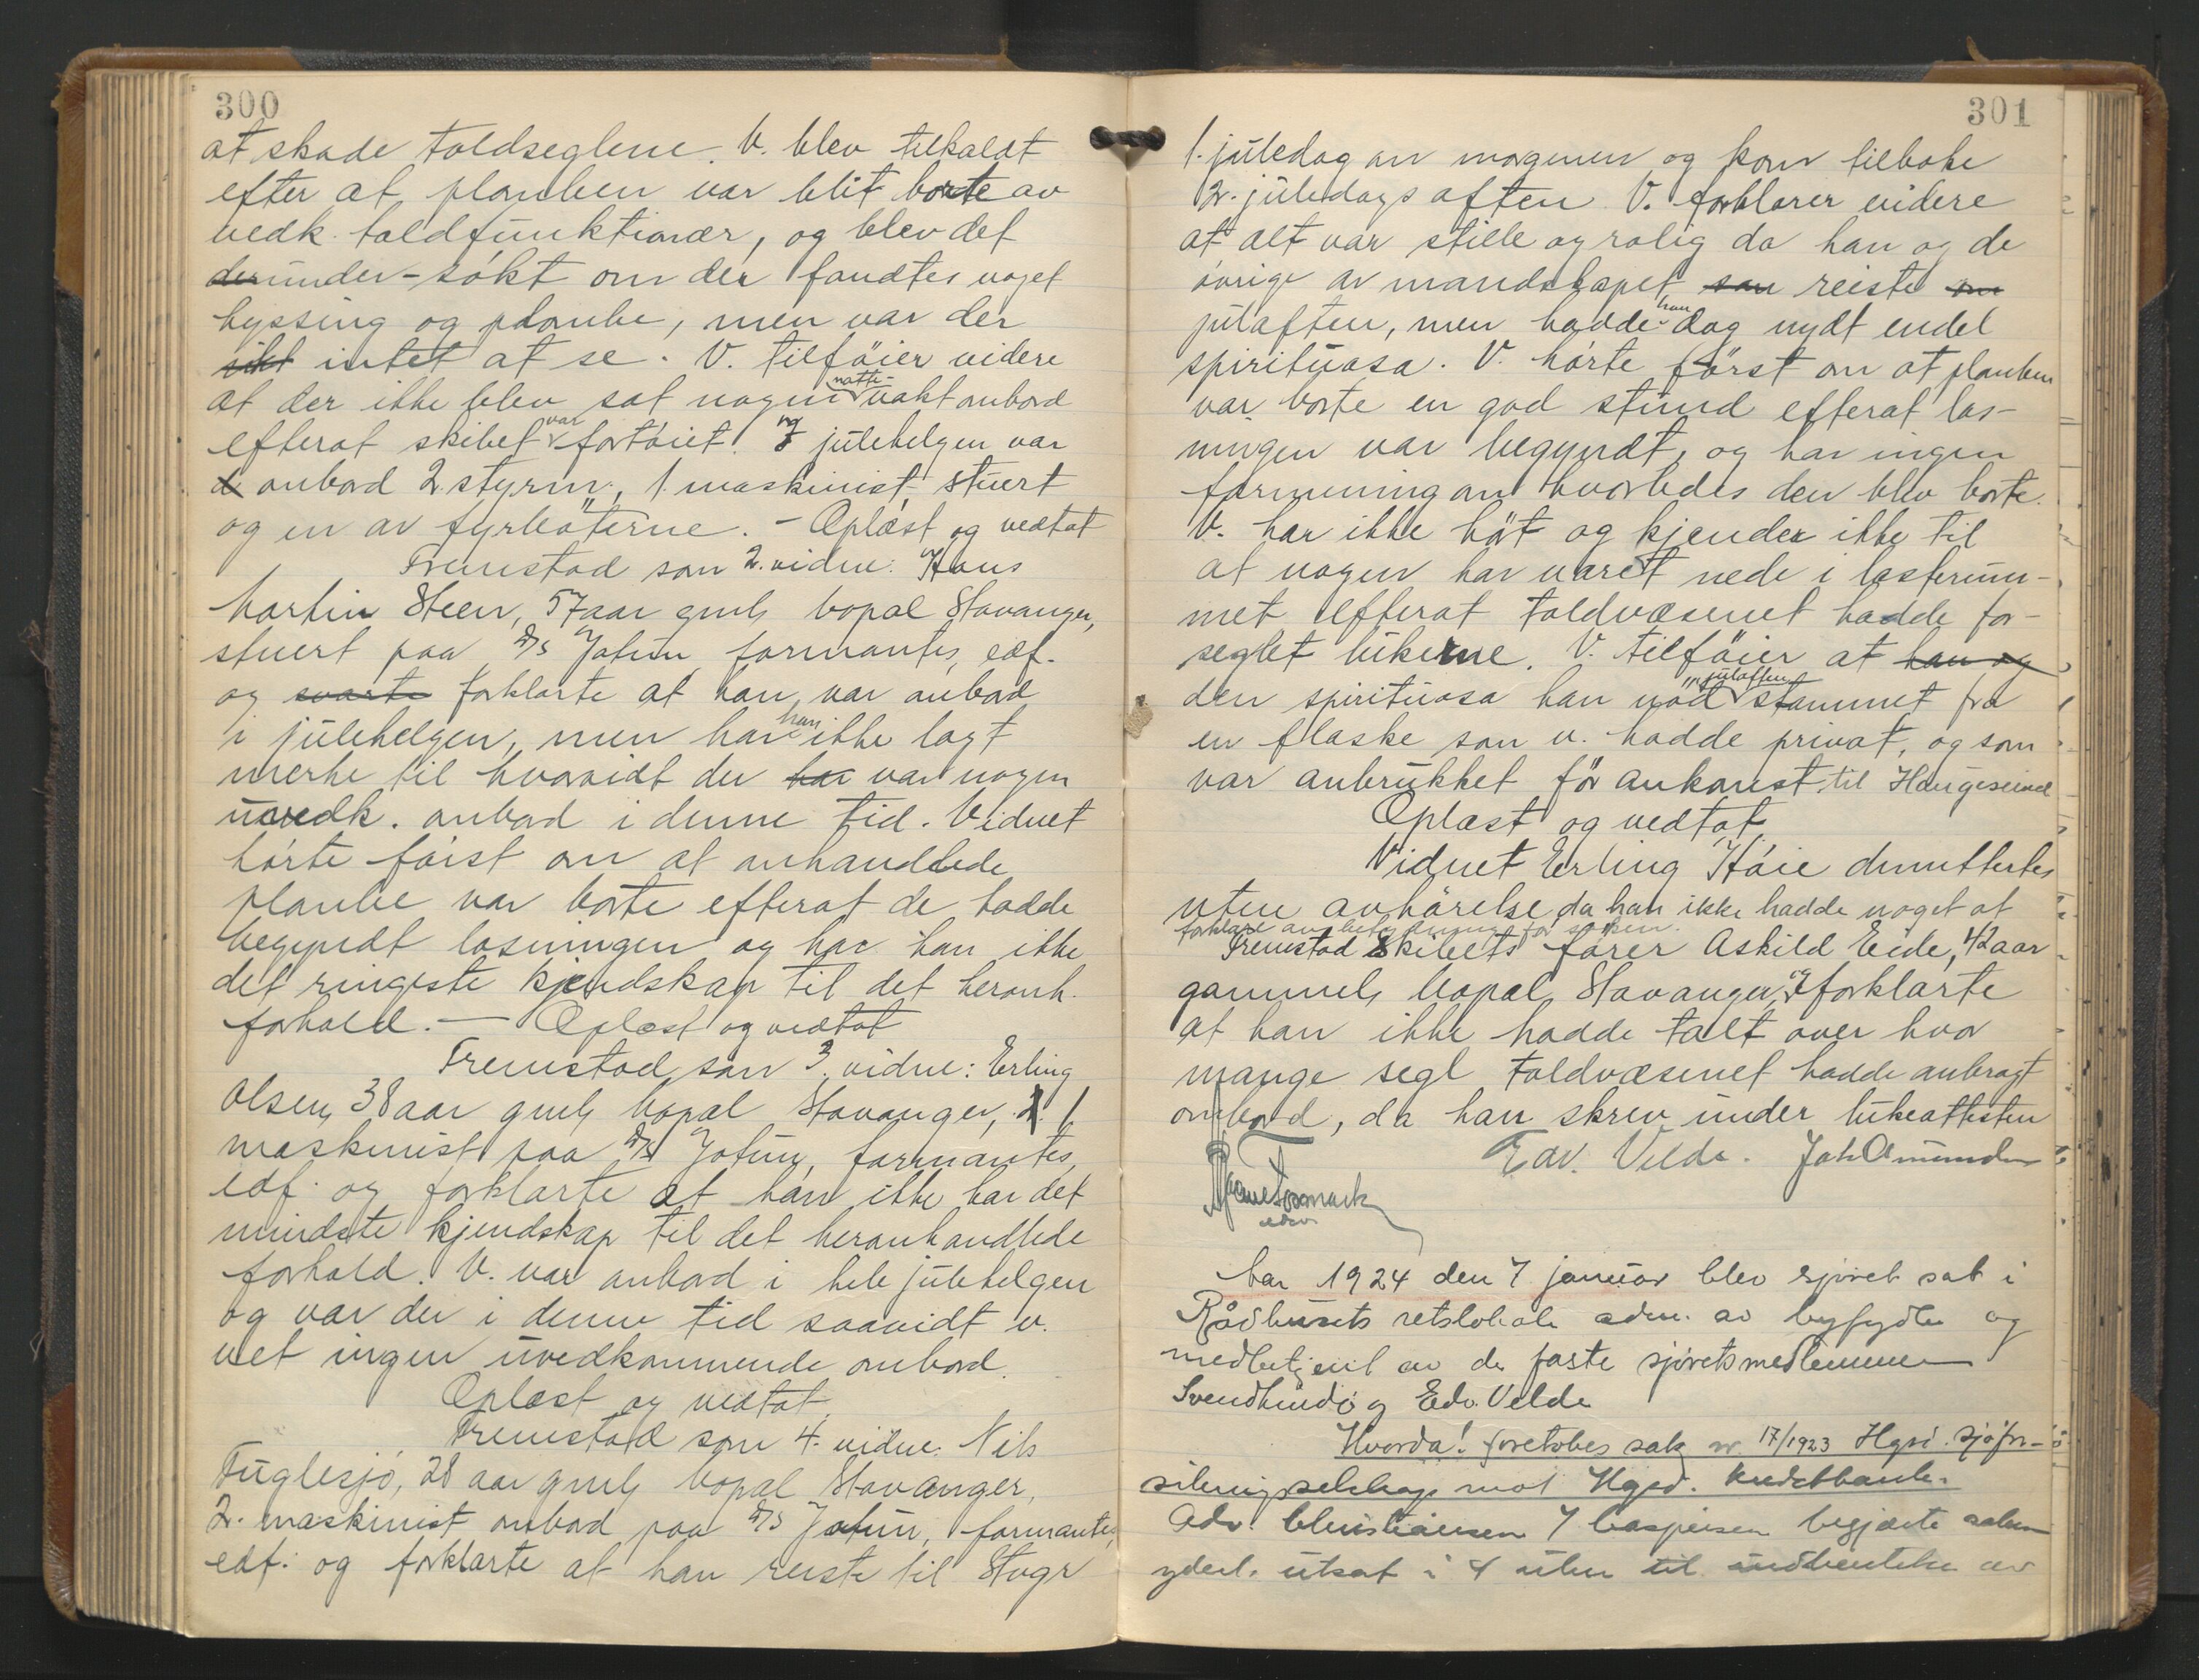 300
at skade toldseglene. V. blev tilkaldt
efter at plomben var blit borte av
vedk. toldfunktionær, og blev det
der under-søkt om der fandtes noget
hyssing og plombe, men var der
ikke intet at se. V. tilføier videre
at der ikke blev sat nogen natte-vakt ombord
efterat skibet var fortøiet. og I julehelgen var
d ombord 2. styrm., 1. maskinist, stuert
og en av fyrbøterne. - Oplæst og vedtat
Fremstod som 2. vidne: Hans
Martin Steen, 57 aar gml, bopæl Stavanger,
stuert paa D/S Jotun, formantes, edf.
og svarte forklarte at han var ombord
i julehelgen, men har han ikke lagt
merke til hvorvidt der har var nogen
uvedk. ombord i denne tid. Vidnet
hørte først om at omhandlede
plombe var borte efterat de hadde
begyndt losningen og har han ikke
det ringeste kjendskap til det heromh.
forhold. — Oplæst og vedtat
Fremstod som 3. vidne: Erling
Olsen, 38 aar gml, bopæl Stavanger, 1.
maskinist paa D/S Jotun, formantes,
edf. og forklarte at han ikke har det
mindste kjendskap til det heromhandlede
forhold. V. var ombord i hele julehelgen
og var der i denne tid saavidt v.
vet ingen uvedkommende ombord.
Oplæst og vedtat.
Fremstod som 4. vidne. Nils
Fuglesjø, 28 aar gml, bopæl Stavanger,
2. maskinist ombord paa D/S Jotun, formantes,
edf. og forklarte at han reiste til Stvgr
301
1. juledag om morgenen og kom tilbake
2. juledags aften. V. forklarer videre
at alt var stille og rolig da han og de
øvrige av mandskapet som reiste om
julaften, men hadde han dog nydt endel
spirituosa. V. hørte først om at plomben
var borte en god stund efterat los-
ningen var begyndt, og har ingen
formening om hvorledes den blev borte.
V. har ikke hørt og kjender ikke til
at nogen har været nede i lasterum-
met efterat toldvæsenet hadde for-
seglet lukerne. V. tilføier at han og
den spirituosa han nød julaften stammet fra
en flaske som v. hadde privat, og som
var anbrukket før ankomst til Haugesund
Oplæst og vedtat.
Vidnet Erling Høie dimittertes
uten avhørelse da han ikke hadde noget at
forklare av betydning for saken.
Fremstod skibets fører Askild Eide, 42 aar
gammel, bopæl Stavanger, og forklarte
at han ikke hadde talt over hvor
mange segl toldvæsenet hadde anbragt
ombord, da han skrev under lukeattesten
Edv. Velde. Joh Amundsen
Aar 1924 den 7 januar blev sjøret sat i
Rådhusets retslokale adm. av byfogden og
medbetjent av de faste sjøretsmedlemmer
Svendhundø og Edv. Velde
Hvorda! foretokes sak nr. 17/1923 Hgsd. sjøfor-
sikringsselskap mot Hgsd. Kreditbank.
Adv. Christiansen / Caspersen begjærte saken
yderl. utsat i 4 uker til indhentelse av